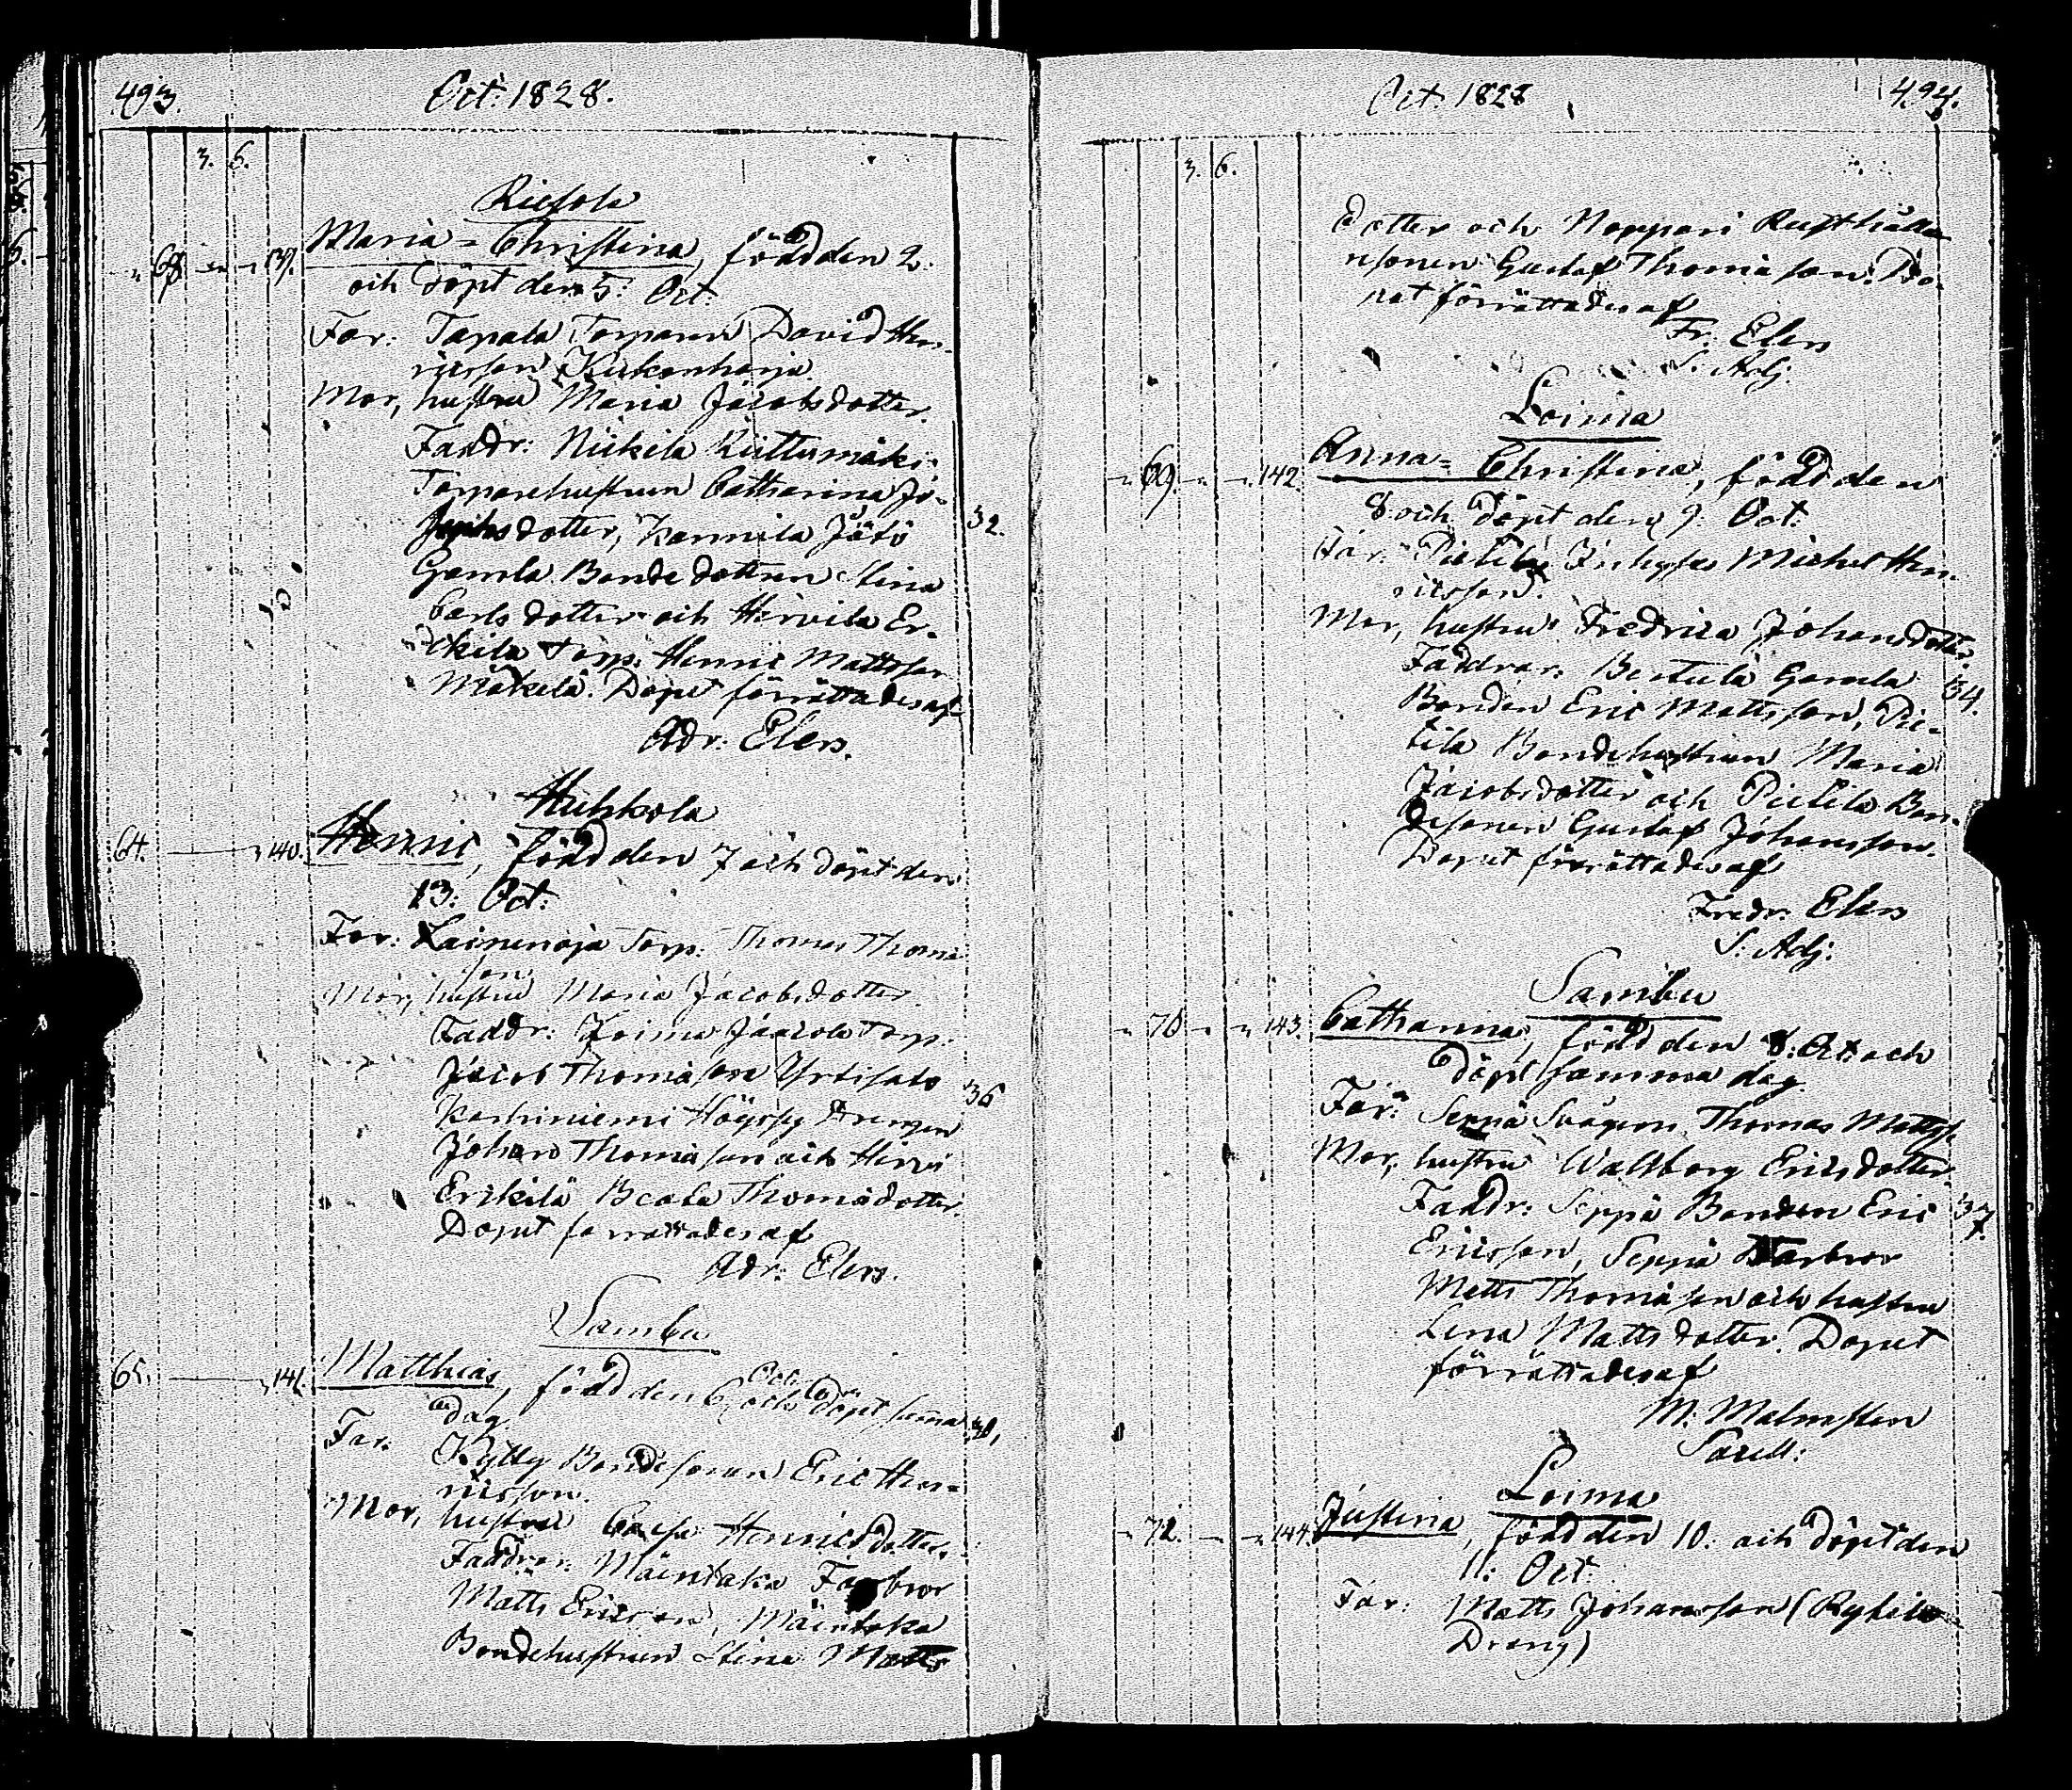 493.
Oct: 1828.
3. 6.
Maria=Christina, född den 2.
68 139.
och döpt den 5: Oct:
Far: Tapala Torparen David Hen-
ricsson
Mor, hustru Maria Jacobsdotter.
Faddr: Nickila
Torparehustrun Catharina
dotter, Kannila 32.
Gamla Bondedottren Stina
Carlsdotter och Hirvila Er-
ckila Torp. Henric Mattsson
Mäkelä. Dopet förrättades af
Adr: Elers.
Huhkola
64. 140. Henric, född den 7 och döpt den
13: Oct:
Far: Torp: Thomas Thoma
son
Mor, hustru Maria Jacobsdotter.
Faddr: Loima Torp:
Jacob Thomasson 36
Drengen
Johan Thomason och Hirvi
Erikilä Beata Thomadotter.
Doput forrättades af
Adr: Elers.
Sambu
65. 141. Matthias, född den 6 Oct: och döpt sama
dag
Far: Kylly Bondesonen Eric Hen-
ricsson.
Mor, hustru Caisa Henricsdotter.
Faddrar: Mäentaka Farbror
Matts Ericsson, Mäentaka
Bondehustrun Stina Matts
Oct: 1828
494.
3. 6.
dotter och Noppari Rusthålla-
resonen Gustaf Thomason. Do-
pet förrättades af
Fr: Elers
S. Adj:
Loima
69. 142. Anna=Christina, född den
8 och döpt den 9: Oct:
Far: Pietilä Inhyses Michel Hen-
ricsson.
Mor, hustru Fredrica Johansdotter.
Faddrar: Bertula Gamla 34.
Bonden Eric Mattsson, Pie-
tila Bondehustrun Maria
Jacobsdotter och Pietila Bon-
desonen Gustaf Johansson.
Doput förrättades af
Fredr: Elers
S. Adj:
Sambu
70 143. Catharina, född den 8: Oct: och
döpt samma dag.
Far: Seppä Svågern Thomas Mattss.
Mor, hustru Walborg Ericsdotter.
Faddr: Seppä Bonden Eric 37.
Ericsson, Seppä Farbror
Matts Thomason och hustru
Lena Mattsdotter. Doput
förrättades af
M: Malmsten
Sacell:
Loima
72. 144. Justina, född den 10: och döpt den
11: Oct:
Far: Matts Johansson (Rykilä
Dräng)